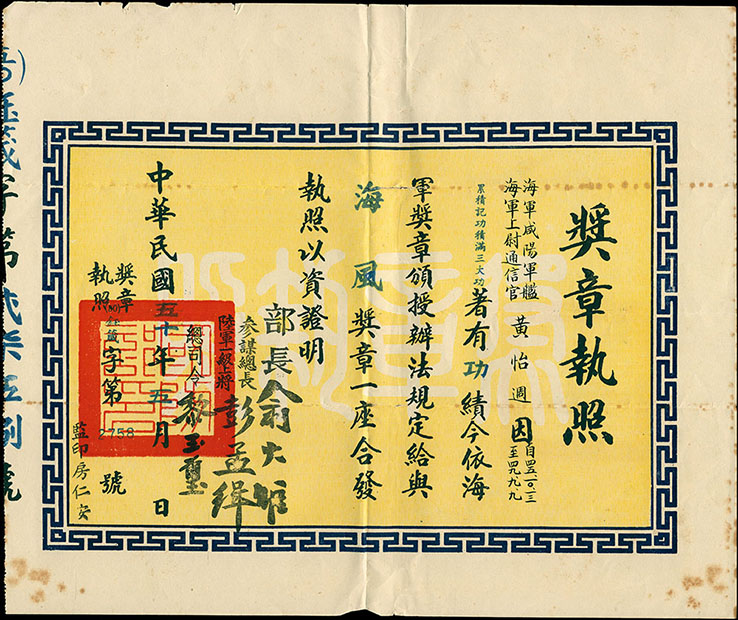 獎章執照
海軍咸陽軍艦
海軍上尉通信官
黃怡週
因
自四五一〇一三
至四九九九
累積記功積滿三大功
著有功績今依海
軍獎章頒授辦法規定給與
海風獎章一座合發
執照以資證明
部長俞大維
參謀總長
陸軍一級上將
彭孟緝
總司令
黎玉璽
中華民國五十年五月 日
獎章
執照
字第
2758
號
監印房仁安